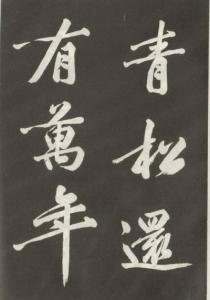 青松還
有萬年